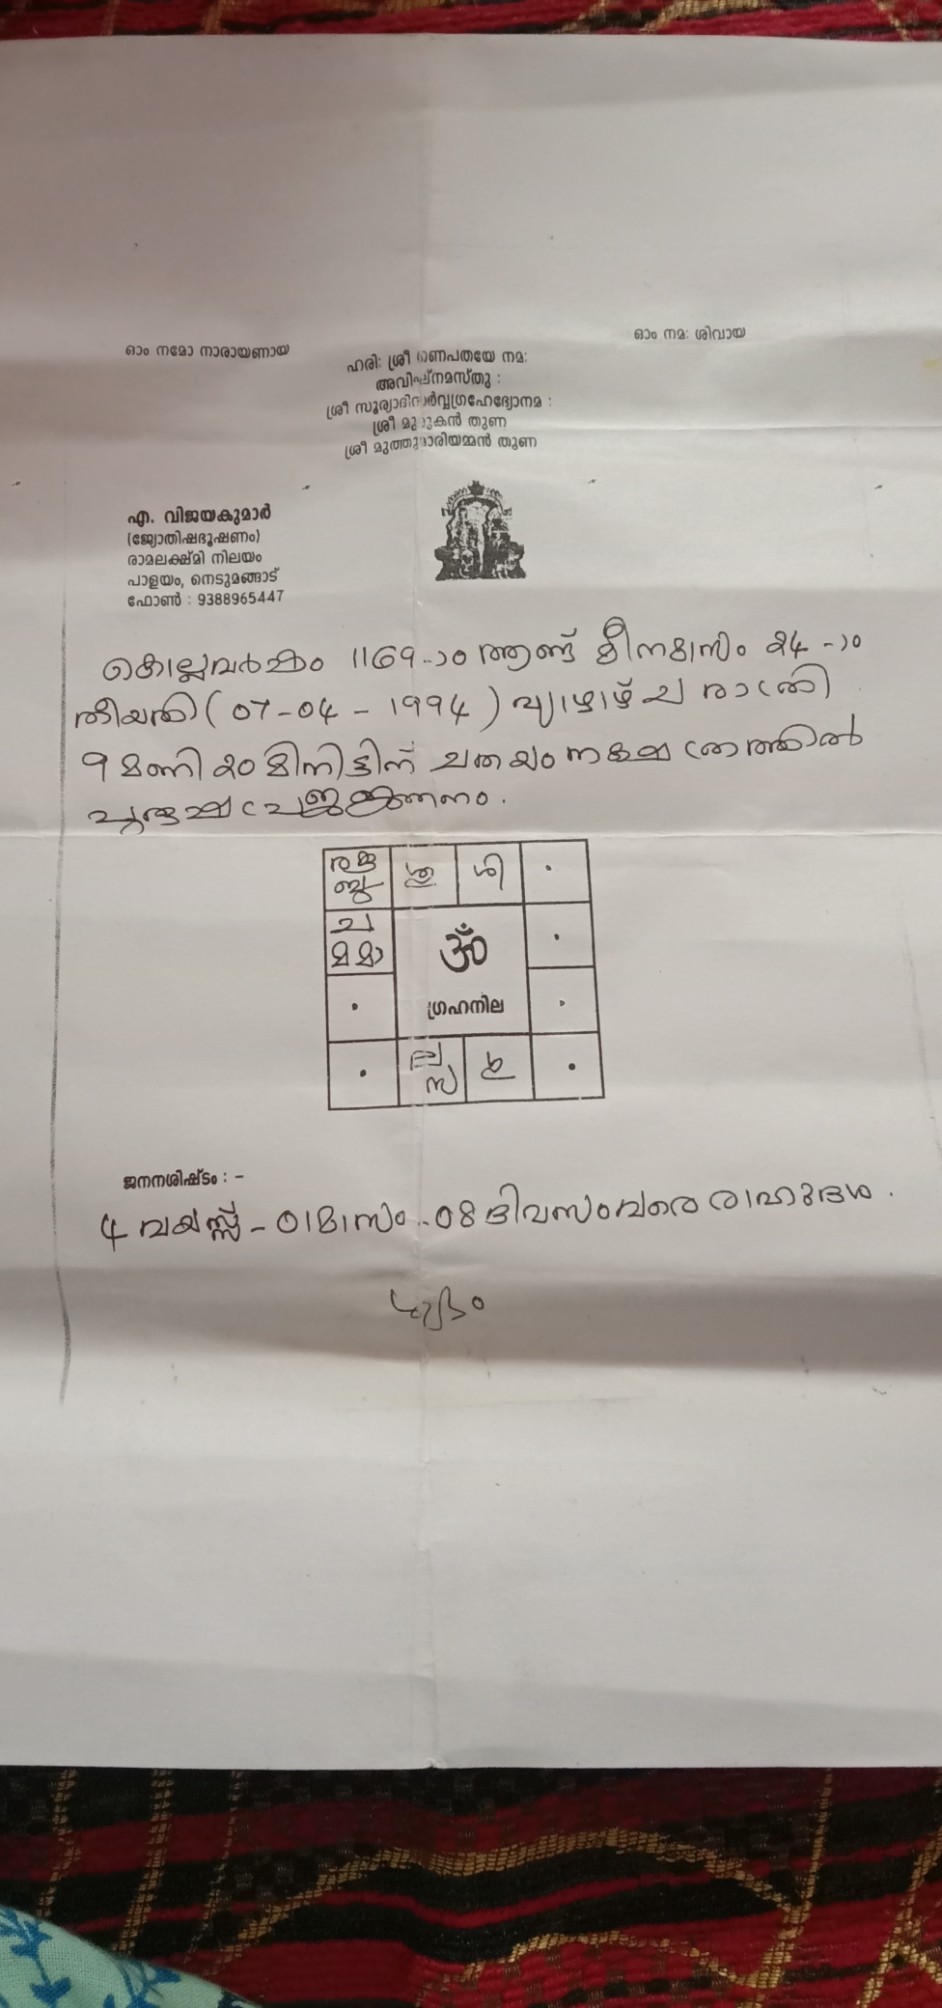 ഓം നമോ നാരായണായ
ഓം നമ: ശിവായ
ഹരി: ശ്രീ ഗണപതയേ നമ:
അവിഘ്നമസ്തു :
ശ്രീ സൂര്യാദിസർവ്വഗ്രഹേഭ്യോനമ :
ശ്രീ മുരുകൻ തുണ
ശ്രീ മുത്തുമാരിയമ്മൻ തുണ
എ. വിജയകുമാർ
(ജ്യോതിഷഭൂഷണം)
രാമലക്ഷ്മി നിലയം
പാളയം, നെടുമങ്ങാട്
ഫോൺ : 9388965447
കൊല്ലവർഷം 1169-ാം ആണ്ട് മീനമാസം 24-ാം
തീയതി (07-04-1994) വ്യാഴാഴ്ച രാത്രി
9 മണി 20 മിനിട്ടിന് ചതയം നക്ഷത്രത്തിൽ
പുരുഷപ്രജജനനം.
ശു ശി
ച
മ മാ
ॐ
ഗ്രഹനില
ല
സ
ജനനശിഷ്ടം : -
4 വയസ്സ് - 01 മാസം - 08 ദിവസംവരെ രാഹുദശ.
ശുഭം